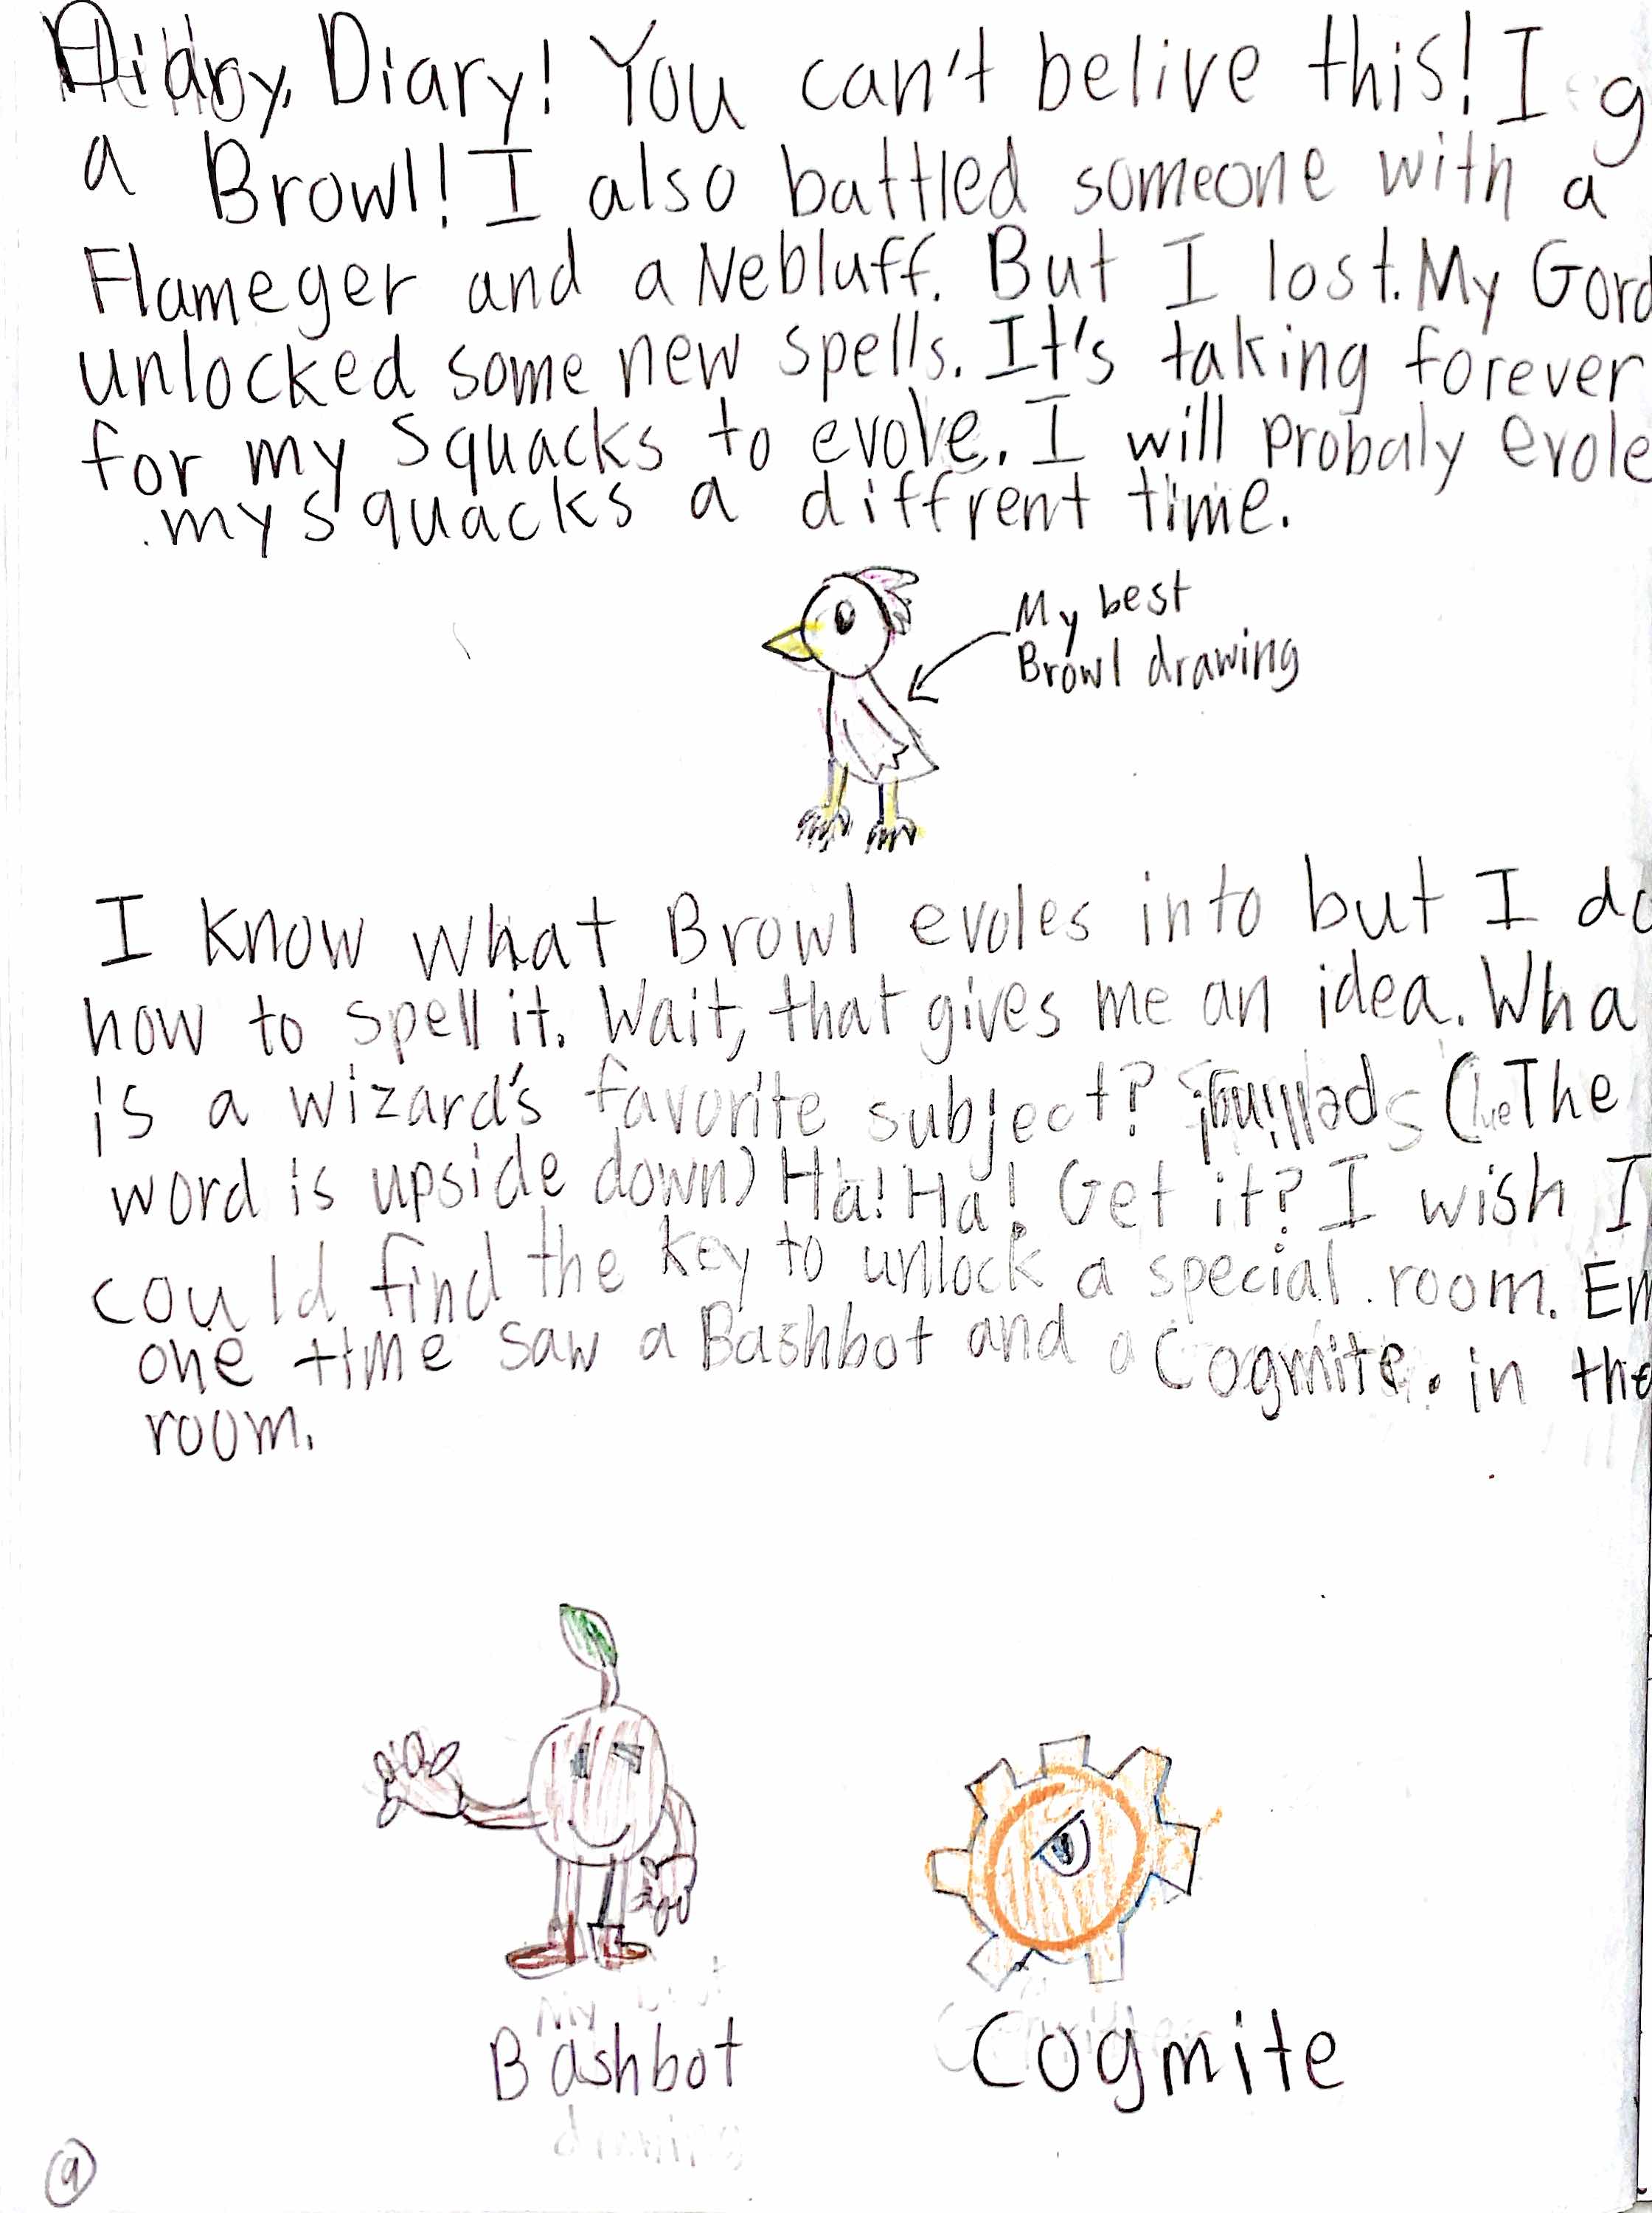 Diary, Diary! You can't belive this! I g
a Browl! I also battled someone with a
Flameger and a Nebluff. But I lost. My Gord
unlocked some new spells. It's taking forever
for my Squacks to evolve. I will probaly evole
my squacks a diffrent time.
My best
Browl drawing
I know what Browl evoles into but I do
how to spell it. Wait, that gives me an idea. Wha
is a wizard's favorite subject? (The
word is upside down) Ha! Ha! Get it? I wish I
could find the key to unlock a special room. Em
one time saw a Bashbot and a Cogmite. in the
room.
Bashbot
Cogmite
9